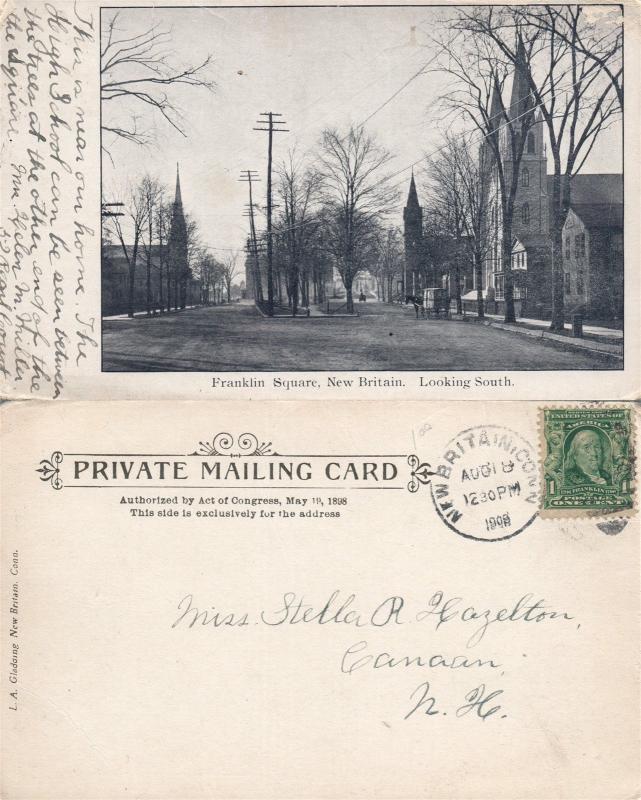 This is near our home. The
High School can be seen between
the trees at the other end of the
the Square.
Franklin Square, New Britain. Looking South.
PRIVATE MAILING CARD
Authorized by Act of Congress, May 19, 1898
This side is exclusively for the address
NEW BRITAIN, CONN
AUG 18
12 30 PM
UNITED STATES OF
AMERICA
FRANKLIN
POSTAGE
1 1
ONE CENT
L. A. Gladding New Britain, Conn.
Miss. Stella R. Hazelton,
Canaan,
N. H.